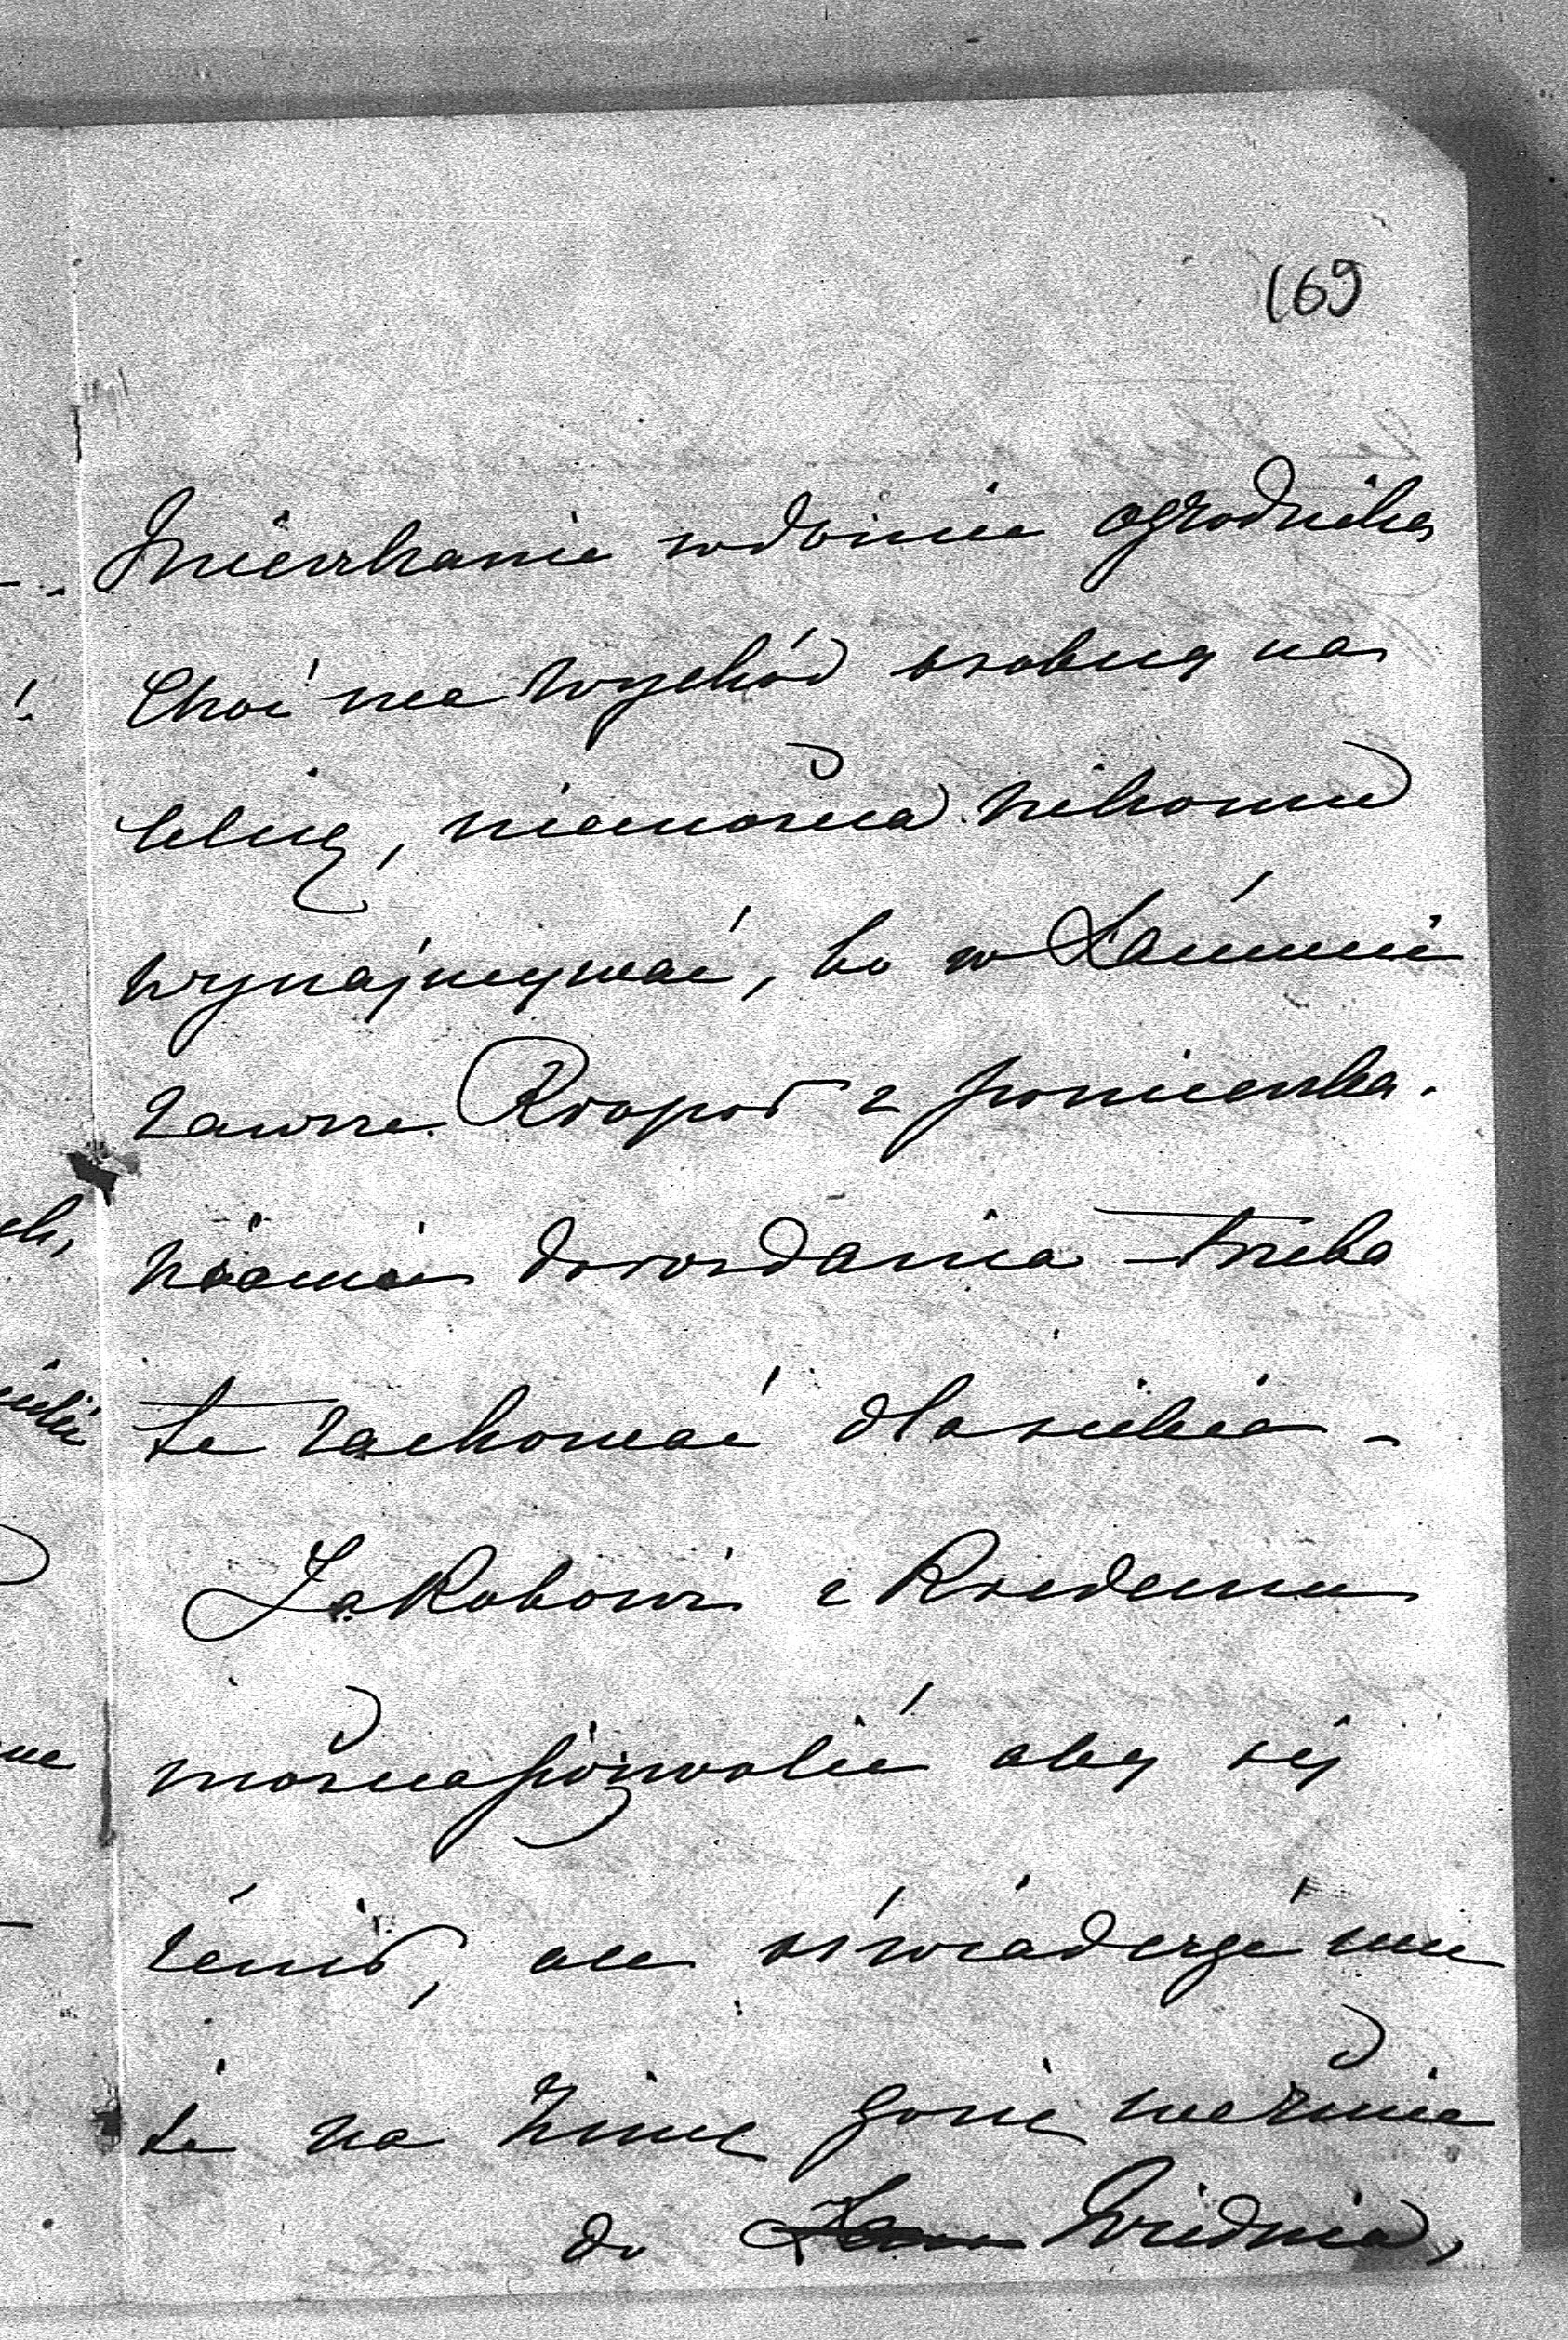 169
Mieszkanie w domie ogrodnika
choć ma wychód osobny na
ulicę, niemożna nikomu
wynajmywać, bo w Łańcucie
zawsze kłopot z pomieszka-
niami do rozdania trzeba
te zachować dla siebie -
Jakobowi z Kredensu
można pozwolić aby się
żenił, ale oświadczyć mu
że na zimę gonię weźmie
do Wiednia,